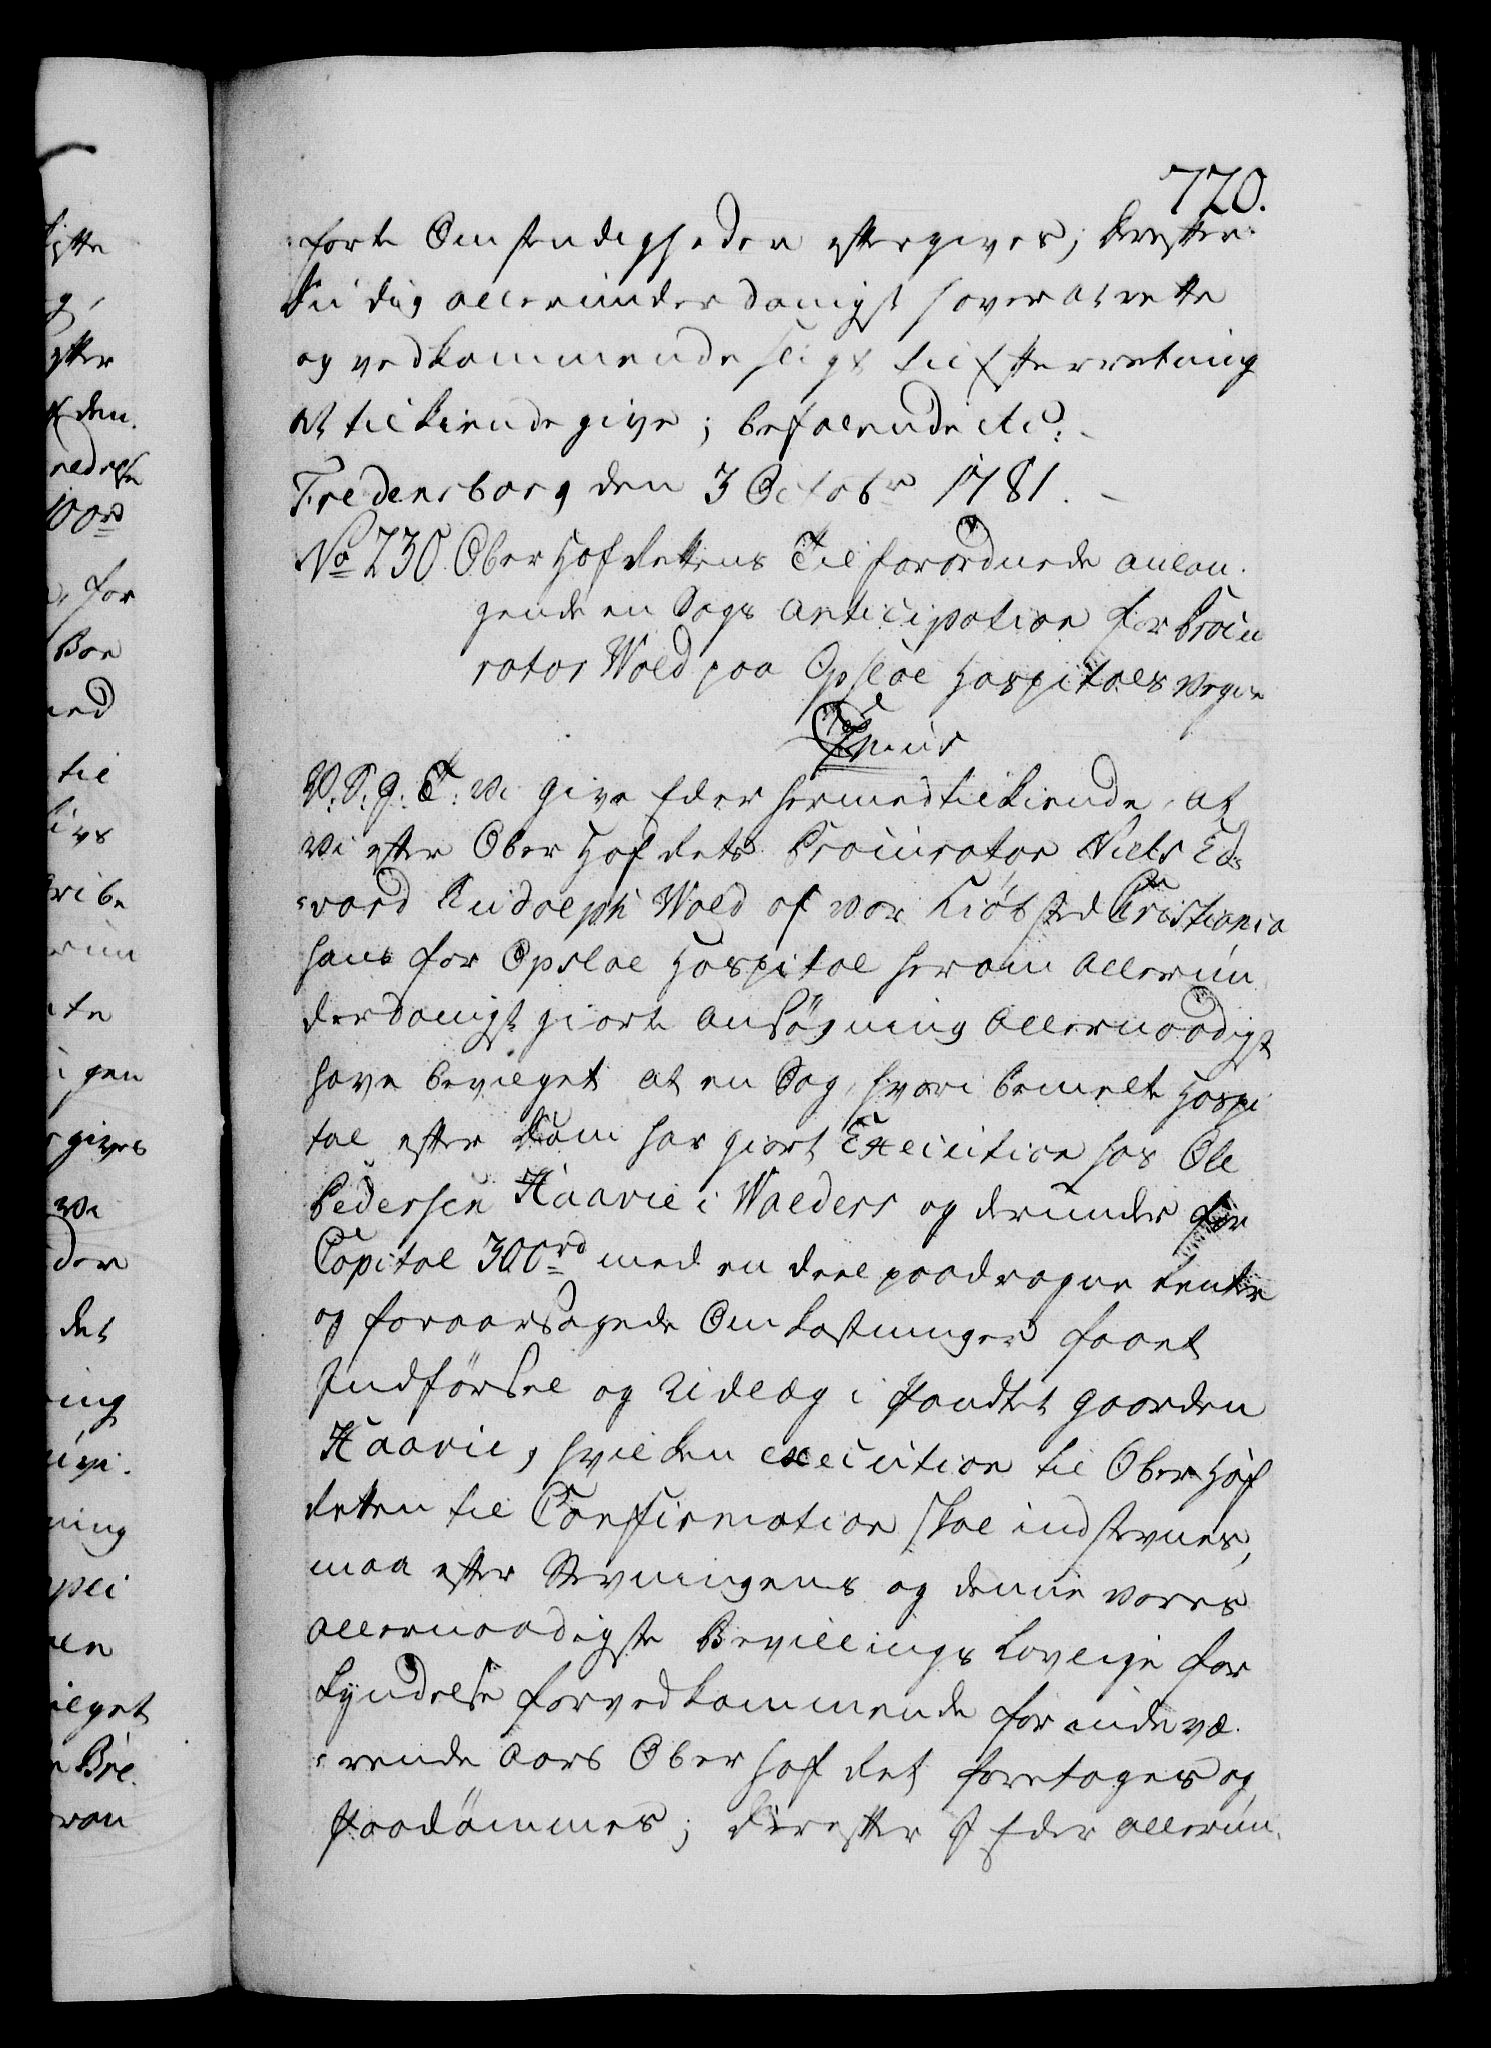 720.
førte Omstændigheder eftergives; Derefter
Du dig allerunderdanigst haver at rette
og vedkommende sligt til Efterretning
at tilkiende give; befalende etc:
Fredensborg den 3 Octobr 1781.
No 230 Ober Hof Rettens Tilforordnede anlan-
gende en Sags Anticipation for Procu
rator Wold paa Opsloe Hospitals Vegne
C. 7mus
V. S. G. T: Vi give Eder hermed tilkiende, at
Vi efter Ober Hof Rets Procurator Niels Ed-
vard Rudolph Wold af vor Kiøbsted Christiania
hans for Opsloe Hospital herom allerun
derdanigst giorte Ansøgning Allernaadigst
have bevilget at en Sag, hvori bemelte Hospi
tal efter Dom har giort Execution hos Ole
Pedersen Haavie i Walders og derunder for
Capital 300 rd med en deel paadragne Renter
og foraarsagede Omkostninger faaet
Indførsel og Udlæg i Pandtet Gaarden
Haavie, hvilken Execution til Ober Hof
Retten til Confirmation skal indstevnes,
maa efter Stevningens og denne Vores
allernaadigste Bevillings lovlige for
kyndelse for vedkommende for indevæ-
rende Aars Ober Hof Ret foretages og
paadømmes; Derefter I Eder allerun-